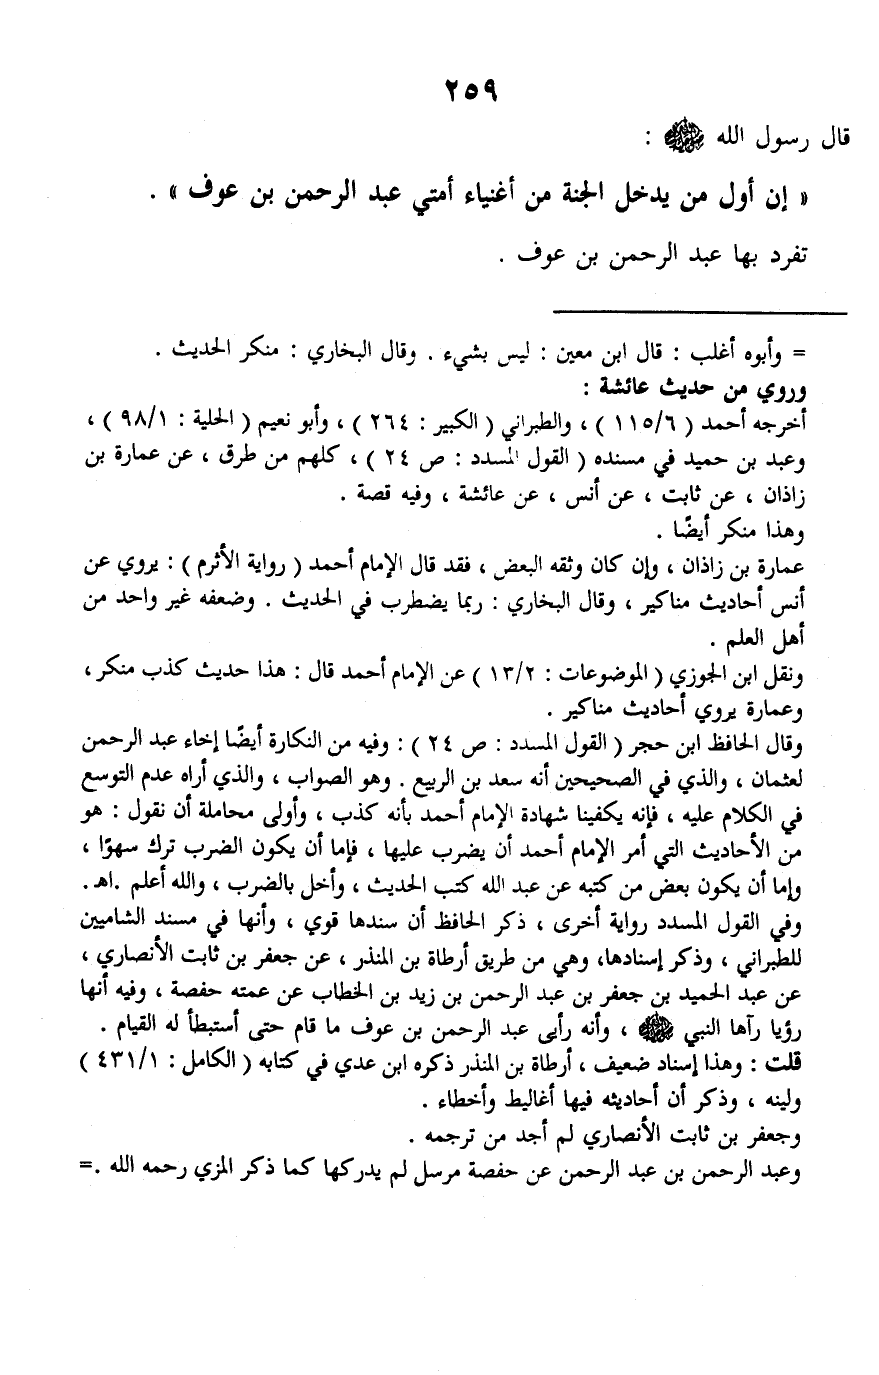 ٢٥٩
قال رسول الله ﷺ :
« إن أول من يدخل الجنة من أغنياء أمتي عبد الرحمن بن عوف » .
تفرد بها عبد الرحمن بن عوف .
= وأبوه أغلب : قال ابن معين : ليس بشيء . وقال البخاري : منكر الحديث .
وروي من حديث عائشة :
أخرجه أحمد ( ١١٥/٦ ) ، والطبراني ( الكبير : ٢٦٤ ) ، وأبو نعيم ( الحلية : ٩٨/١ ) ،
وعبد بن حميد في مسنده ( القول المسدد : ص ٢٤ ) ، كلهم من طرق ، عن عمارة بن
زاذان ، عن ثابت ، عن أنس ، عن عائشة ، وفيه قصة .
وهذا منكر أيضًا .
عمارة بن زاذان ، وإن كان وثقه البعض ، فقد قال الإمام أحمد ( رواية الأثرم ) : يروي عن
أنس أحاديث مناكير ، وقال البخاري : ربما يضطرب في الحديث . وضعفه غير واحد من
أهل العلم .
ونقل ابن الجوزي ( الموضوعات : ١٣/٢ ) عن الإمام أحمد قال : هذا حديث كذب منكر ،
وعمارة يروي أحاديث مناكير .
وقال الحافظ ابن حجر ( القول المسدد : ص ٢٤ ) : وفيه من النكارة أيضًا إخاء عبد الرحمن
لعثمان ، والذي في الصحيحين أنه سعد بن الربيع . وهو الصواب ، والذي أراه عدم التوسع
في الكلام عليه ، فإنه يكفينا شهادة الإمام أحمد بأنه كذب ، وأولى محاملة أن نقول : هو
من الأحاديث التي أمر الإمام أحمد أن يضرب عليها ، فإما أن يكون الضرب ترك سهوًا ،
وإما أن يكون بعض من كتبه عن عبد الله كتب الحديث ، وأخل بالضرب ، والله أعلم .اهـ.
وفي القول المسدد رواية أخرى ، ذكر الحافظ أن سندها قوي ، وأنها في مسند الشاميين
للطبراني ، وذكر إسنادها، وهي من طريق أرطاة بن المنذر ، عن جعفر بن ثابت الأنصاري ،
عن عبد الحميد بن جعفر بن عبد الرحمن بن زيد بن الخطاب عن عمته حفصة ، وفيه أنها
رؤيا رآها النبي ﷺ ، وأنه رأىٰ عبد الرحمن بن عوف ما قام حتى أستبطأ له القيام .
قلت : وهذا إسناد ضعيف ، أرطاة بن المنذر ذكره ابن عدي في كتابه ( الكامل : ٤٣١/١ )
ولينه ، وذكر أن أحاديثه فيها أغاليط وأخطاء .
وجعفر بن ثابت الأنصاري لم أجد من ترجمه .
وعبد الرحمن بن عبد الرحمن عن حفصة مرسل لم يدركها كما ذكر المزي رحمه الله .=